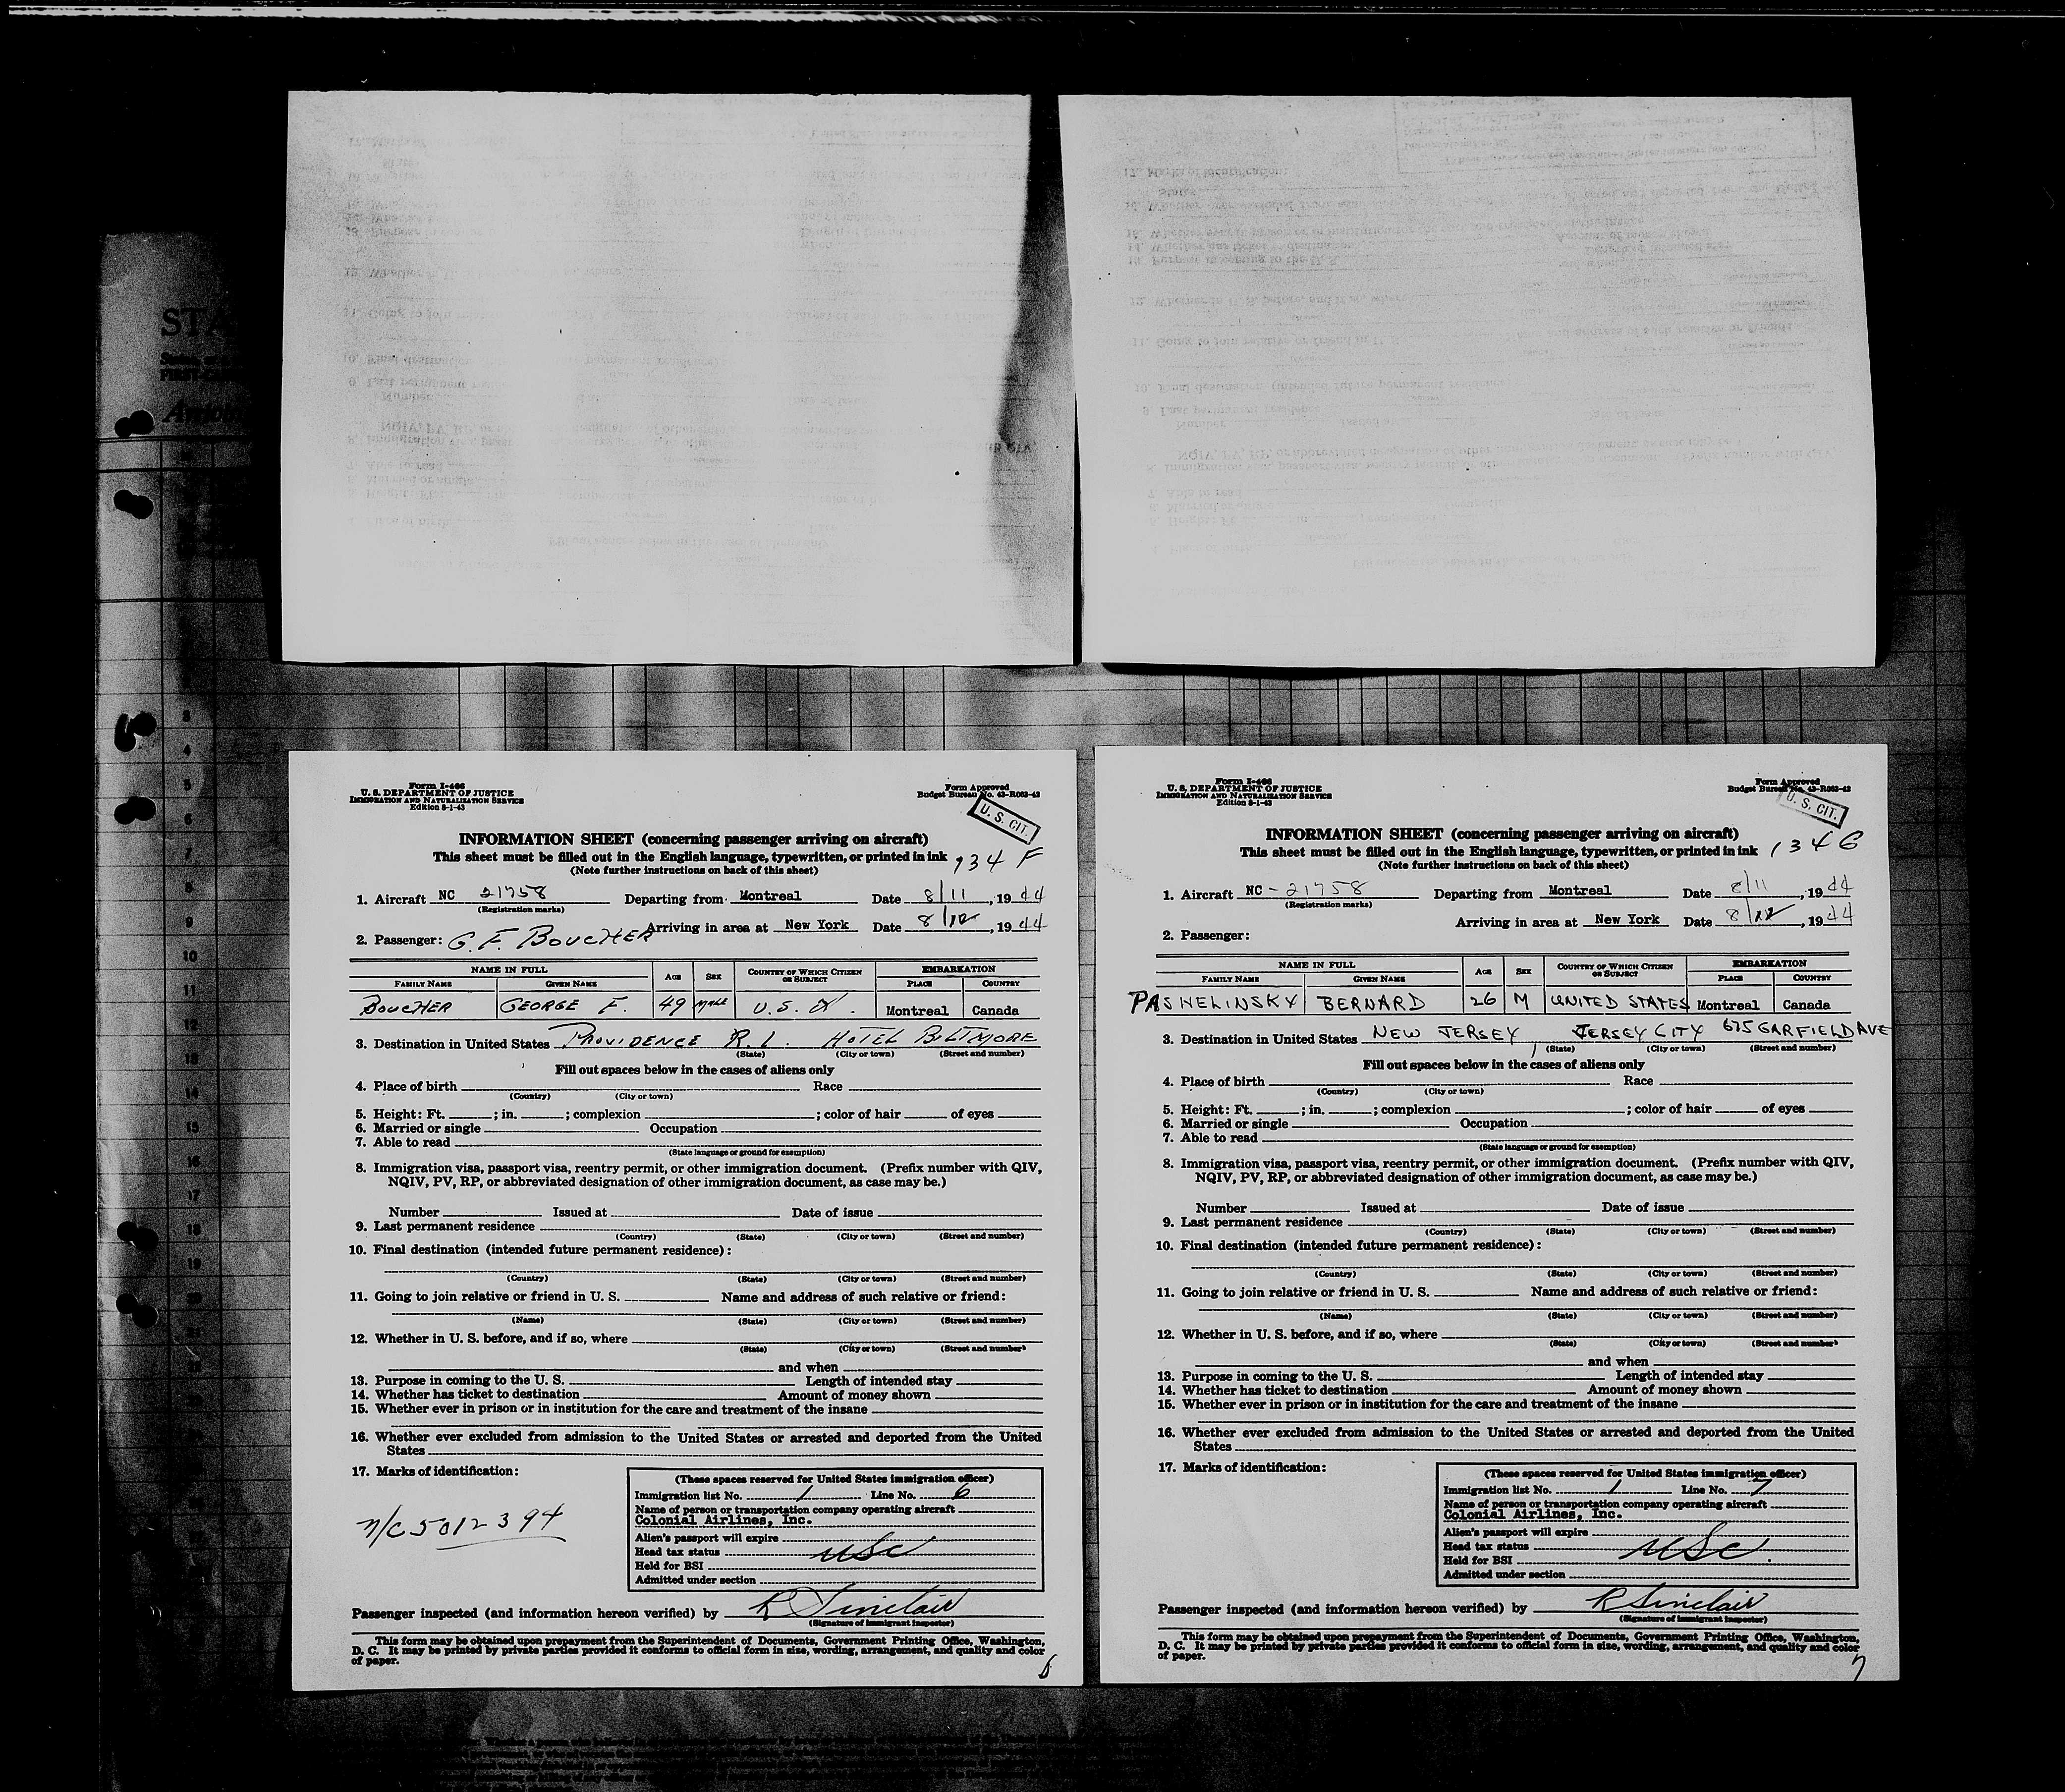 STA
FIRST-CA
3
4
5
6
7
8
9
10
11
12
13
14
15
16
17
18
19
Form I-466
U. S. DEPARTMENT OF JUSTICE
IMMIGRATION AND NATURALIZATION SERVICE
Edition 8-1-43
Form Approved
Budget Bureau No. 43-R063-42
U. S. CIT.
INFORMATION SHEET (concerning passenger arriving on aircraft)
This sheet must be filled out in the English language, typewritten, or printed in ink 134 F
(Note further instructions on back of this sheet)
1. Aircraft NC 21758 Departing from Montreal Date 8/11, 1944
(Registration marks)
Arriving in area at New York Date 8/12, 1944
2. Passenger: G. F. BOUCHER
NAME IN FULL AGE SEX COUNTRY OF WHICH CITIZEN OR SUBJECT EMBARKATION
FAMILY NAME GIVEN NAME PLACE COUNTRY
BOUCHER GEORGE F. 49 MALE U. S. A. Montreal Canada
3. Destination in United States PROVIDENCE R. I. HOTEL BILTMORE
(State) (City or town) (Street and number)
Fill out spaces below in the cases of aliens only
4. Place of birth Race
(Country) (City or town)
5. Height: Ft. ; in. ; complexion ; color of hair of eyes
6. Married or single Occupation
7. Able to read
(State language or ground for exemption)
8. Immigration visa, passport visa, reentry permit, or other immigration document. (Prefix number with QIV,
NQIV, PV, RP, or abbreviated designation of other immigration document, as case may be.)
Number Issued at Date of issue
9. Last permanent residence
(Country) (State) (City or town) (Street and number)
10. Final destination (intended future permanent residence):
(Country) (State) (City or town) (Street and number)
11. Going to join relative or friend in U. S. Name and address of such relative or friend:
(Name) (State) (City or town) (Street and number)
12. Whether in U. S. before, and if so, where
(State) (City or town) (Street and number)
and when
13. Purpose in coming to the U. S. Length of intended stay
14. Whether has ticket to destination Amount of money shown
15. Whether ever in prison or in institution for the care and treatment of the insane
16. Whether ever excluded from admission to the United States or arrested and deported from the United
States
17. Marks of identification:
N/C 5012394
(These spaces reserved for United States immigration officer)
Immigration list No. 1 Line No. 6
Name of person or transportation company operating aircraft
Colonial Airlines, Inc.
Alien's passport will expire
Head tax status USC
Held for BSI
Admitted under section
Passenger inspected (and information hereon verified) by R Sinclair
(Signature of immigrant inspector)
This form may be obtained upon prepayment from the Superintendent of Documents, Government Printing Office, Washington,
D. C. It may be printed by private parties provided it conforms to official form in size, wording, arrangement, and quality and color
of paper.
6
Form I-466
U. S. DEPARTMENT OF JUSTICE
IMMIGRATION AND NATURALIZATION SERVICE
Edition 8-1-43
Form Approved
Budget Bureau No. 43-R063-42
U. S. CIT.
INFORMATION SHEET (concerning passenger arriving on aircraft)
This sheet must be filled out in the English language, typewritten, or printed in ink 134 G
(Note further instructions on back of this sheet)
1. Aircraft NC - 21758 Departing from Montreal Date 8/11, 1944
(Registration marks)
Arriving in area at New York Date 8/12, 1944
2. Passenger:
NAME IN FULL AGE SEX COUNTRY OF WHICH CITIZEN OR SUBJECT EMBARKATION
FAMILY NAME GIVEN NAME PLACE COUNTRY
PASHELINSKY BERNARD 26 M UNITED STATES Montreal Canada
3. Destination in United States NEW JERSEY JERSEY CITY 675 GARFIELD AVE
(State) (City or town) (Street and number)
Fill out spaces below in the cases of aliens only
4. Place of birth Race
(Country) (City or town)
5. Height: Ft. ; in. ; complexion ; color of hair of eyes
6. Married or single Occupation
7. Able to read
(State language or ground for exemption)
8. Immigration visa, passport visa, reentry permit, or other immigration document. (Prefix number with QIV,
NQIV, PV, RP, or abbreviated designation of other immigration document, as case may be.)
Number Issued at Date of issue
9. Last permanent residence
(Country) (State) (City or town) (Street and number)
10. Final destination (intended future permanent residence):
(Country) (State) (City or town) (Street and number)
11. Going to join relative or friend in U. S. Name and address of such relative or friend:
(Name) (State) (City or town) (Street and number)
12. Whether in U. S. before, and if so, where
(State) (City or town) (Street and number)
and when
13. Purpose in coming to the U. S. Length of intended stay
14. Whether has ticket to destination Amount of money shown
15. Whether ever in prison or in institution for the care and treatment of the insane
16. Whether ever excluded from admission to the United States or arrested and deported from the United
States
17. Marks of identification:
(These spaces reserved for United States immigration officer)
Immigration list No. 1 Line No. 7
Name of person or transportation company operating aircraft
Colonial Airlines, Inc.
Alien's passport will expire
Head tax status USC.
Held for BSI
Admitted under section
Passenger inspected (and information hereon verified) by R Sinclair
(Signature of immigrant inspector)
This form may be obtained upon prepayment from the Superintendent of Documents, Government Printing Office, Washington,
D. C. It may be printed by private parties provided it conforms to official form in size, wording, arrangement, and quality and color
of paper.
7